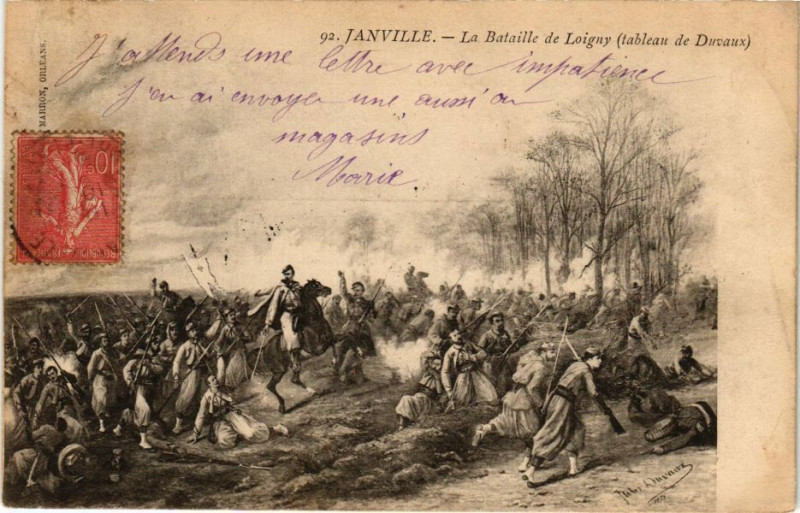 92. JANVILLE. — La Bataille de Loigny (tableau de Duvaux)
MARRON, ORLÉANS.
J'attends une lettre avec impatience
J'en ai envoyer une aussi au
magasins
Marie
10c
Jules Duvaux